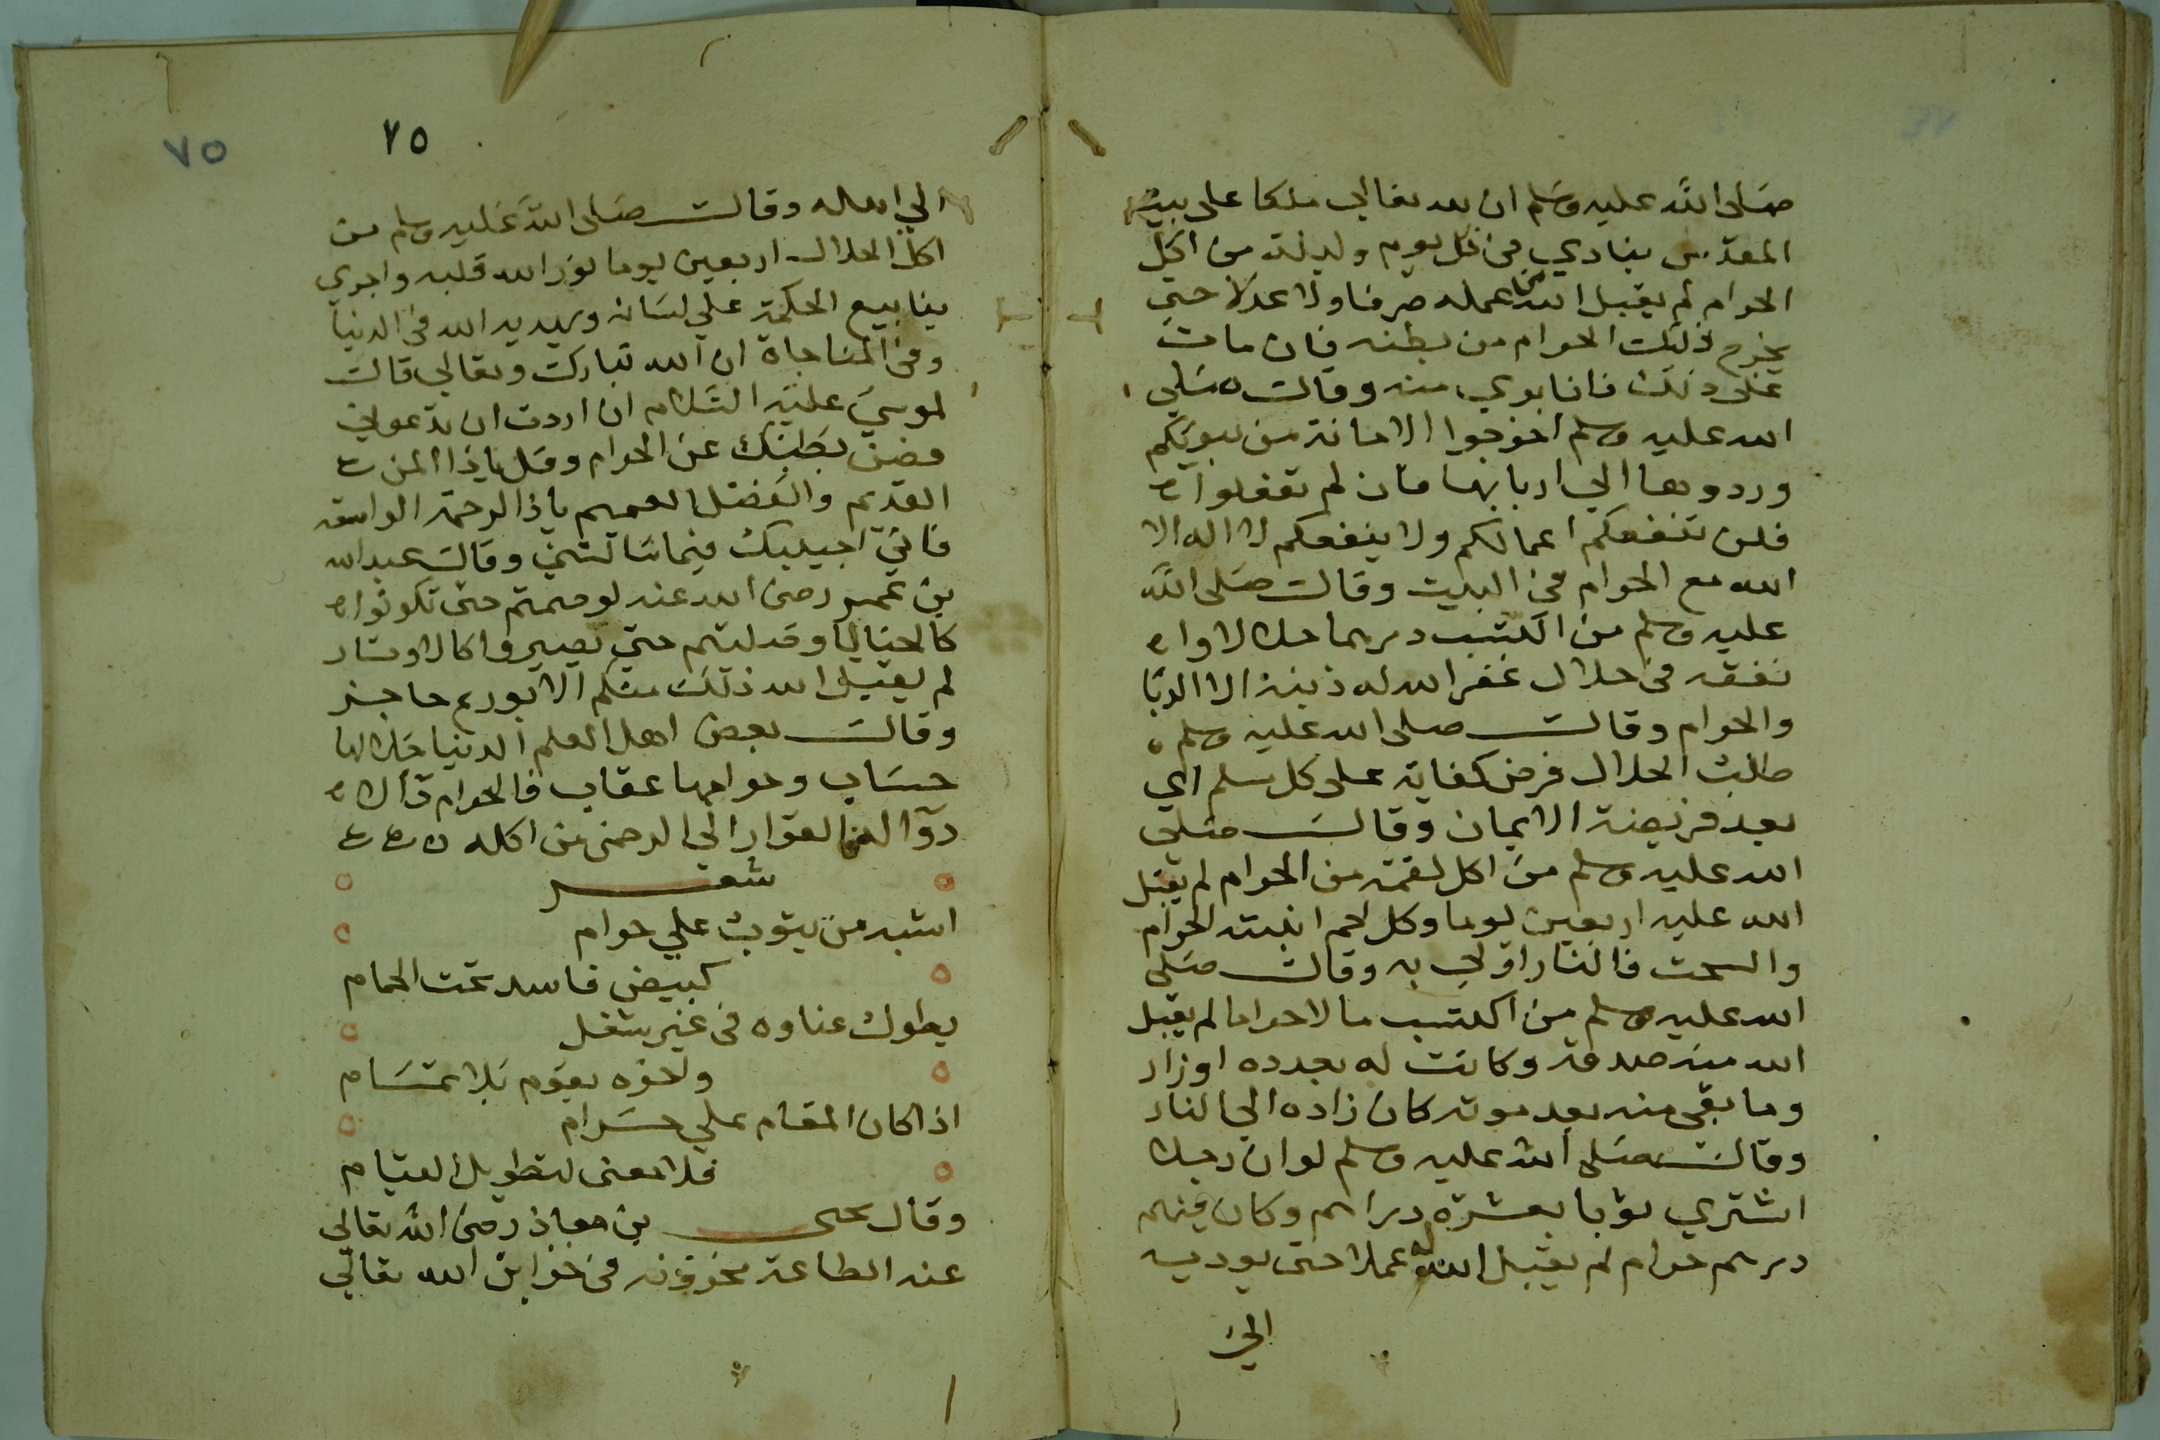 صلى الله عليه وسلم ان لله تعالي ملكا على بيت
المقدس ينادي في كل يوم وليلة من اكل
الحرام لم يقبل الله من عمله صرفا ولا عدلا حتي
يخرج ذلك الحرام من بطنه فان مات
على ذلك فانا بري منه وقال صلي
الله عليه وسلم اخرجوا الامانة من بيوتكم
وردوها الي اربابها فان لم تفعلوا
فلن تنفعكم اعمالكم ولا ينفعكم لا اله الا
الله مع الحرام في البيت وقال صلى الله
عليه وسلم من اكتسب درهما حلالا وا
نفقه في حلال غفر الله له ذنبه الا الربا
والحرام وقال صلى الله عليه وسلم
طلب الحلال فرض كفاية على كل مسلم اي
بعد فريضة الايمان وقال صلي
الله عليه وسلم من اكل لقمة من الحرام لم يقبل
الله عليه اربعين يوما وكل لحم انبته الحرام
والسحت فالنار اولي به وقال صلى
الله عليه وسلم من اكتسب مالا حراما لم يقبل
الله منه صدقة وكانت له بعدده اوزار
وما بقى منه بعد موته كان زاده الي النار
وقال صلى الله عليه وسلم لو ان رجلا
اشتري ثوبا بعشرة دراهم وكان فيهم
درهم حرام لم يقبل الله له عملا حتى يوديه
الي
٧٥
٧٥
الي اهله وقال صلى الله عليه وسلم من
اكل الحلال اربعين يوما نور الله قلبه واجري
ينابيع الحكمة علي لسانه ويهديه الله في الدنيا
وفي المناجاة ان الله تبارك وتعالي قال
لموسي عليه السلام ان اردت ان تدعوني
فصن بطنك عن الحرام وقل ياذا المن
القديم والفضل العميم ياذا الرحمة الواسعة
فاني اجيبك فيما سالتني وقال عبد الله
بن عمر رضى الله عنه لو صمتم حتى تكونوا
كالحنايا وصليتم حتي تصيروا كالاوتار
لم يقبل الله ذلك منكم الا بورع حاجز
وقال بعض اهل العلم الدنيا حلالها
حساب وحرامها عقاب فالحرام دآء لا
دوآ له الا الفرار الي الرحمن من اكله
شعر
اشبه من يتوب علي حرام
كبيض فاسد تحت الحمام
يطول عناوه في غير شغل
واخره يقوم بلا تمام
اذا كان المقام علي حرام
فلا معنى لتطويل القيام
وقال يحيى بن معاذ رضى الله تعالي
عنه الطاعة مخزونة في خزاين الله تعالي